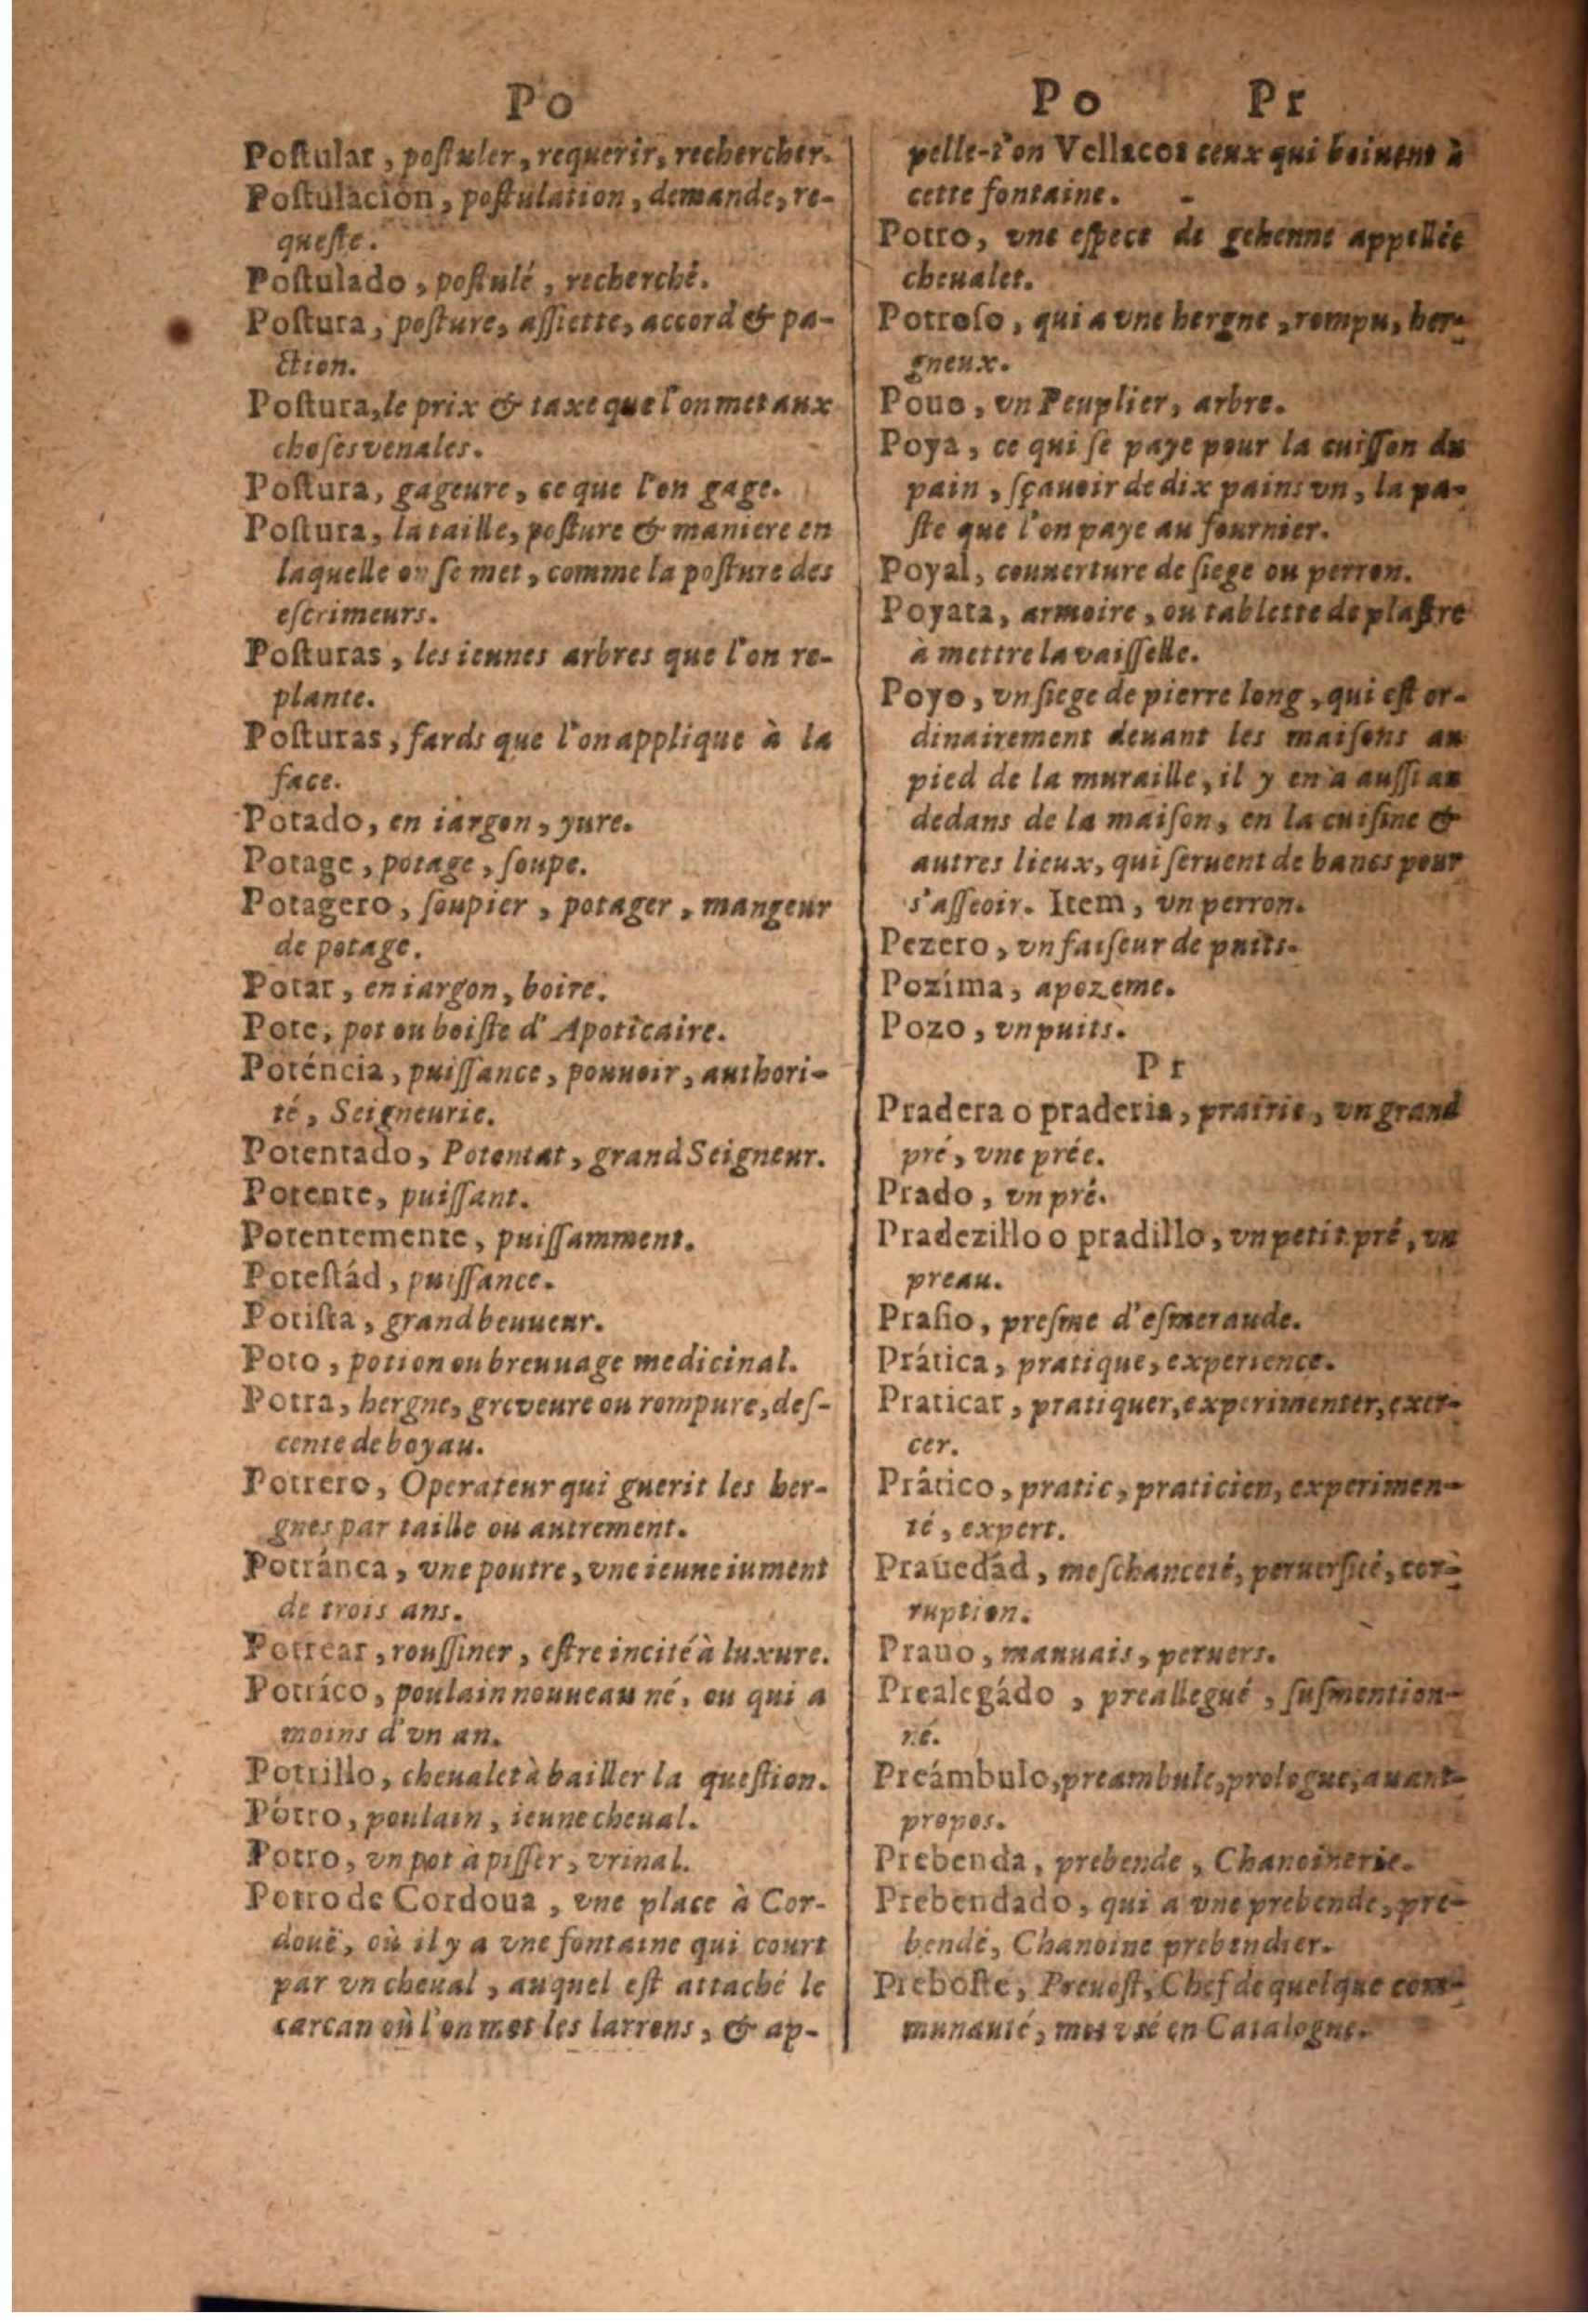 Po
Poſtular, poſtuler, requerir, rechercher.
Poſtulación, poſtulation, demande, re-
queſte.
Poſtulado, poſtulé, recherché.
Poſtura, poſture, aſſiette, accord & pa-
ction.
Poſtura, le prix & taxe que l'on met aux
choſes venales.
Poſtura, gageure, ce que l'on gage.
Poſtura, la taille, poſture & maniere en
laquelle on ſe met, comme la poſture des
eſcrimeurs.
Poſturas, les ieunes arbres que l'on re-
plante.
Poſturas, fards que l'on applique à la
face.
Potado, en iargon, yure.
Potage, potage, ſoupe.
Potagero, ſoupier, potager, mangeur
de potage.
Potar, en iargon, boire.
Pote, pot ou boiſte d'Apoticaire.
Poténcia, puiſſance, pouuoir, authori-
té, Seigneurie.
Potentado, Potentat, grand Seigneur.
Potente, puiſſant.
Potentemente, puiſſamment.
Poteſtád, puiſſance.
Potiſta, grand beuueur.
Poto, potion ou breuuage medicinal.
Potra, hergne, greveure ou rompure, deſ-
cente de boyau.
Potrero, Operateur qui guerit les her-
gnes par taille ou autrement.
Potránca, vne poutre, vne ieune iument
de trois ans.
Potrear, rouſſiner, eſtre incité à luxure.
Potríco, poulain nouueau né, ou qui a
moins d'vn an.
Potrillo, cheualet à bailler la queſtion.
Pótro, poulain, ieune cheual.
Potro, vn pot à piſſer, vrinal.
Potro de Cordoua, vne place à Cor-
douë, où il y a vne fontaine qui court
par vn cheual, auquel est attaché le
carcan où l'on met les larrons, & ap-
Po Pr
pelle-t'on Vellacos ceux qui boiuent à
cette fontaine.
Potro, vne eſpece de gehenne appellée
cheualet.
Potroſo, qui a vne hergne, rompu, her-
gneux.
Pouo, vn Peuplier, arbre.
Poya, ce qui ſe paye pour la cuiſſon du
pain, ſçauoir de dix pains vn, la pa-
ſte que l'on paye au fournier.
Poyal, couuerture de ſiege ou perron.
Poyata, armoire, ou tablette de plaſtre
à mettre la vaiſſelle.
Poyo, vn ſiege de pierre long, qui eſt or-
dinairement deuant les maiſons au
pied de la muraille, il y en a auſſi au
dedans de la maiſon, en la cuiſine &
autres lieux, qui ſeruent de bancs pour
s'aſſeoir. Item, vn perron.
Pezero, vn faiſeur de puits.
Pozíma, apozeme.
Pozo, vn puits.
Pr
Pradera o praderia, prairie, vn grand
pré, vne prée.
Prado, vn pré.
Pradezillo o pradillo, vn petit pré, vn
preau.
Praſio, preſme d'eſmeraude.
Prática, pratique, experience.
Praticar, pratiquer, experimenter, exer-
cer.
Prático, pratic, praticien, experimen-
té, expert.
Prauedád, meſchanceté, peruerſité, cor-
ruption.
Prauo, mauuais, peruers.
Prealegádo, preallegué, ſuſmention-
né.
Preámbulo, preambule, prologue, auant-
propos.
Prebenda, prebende, Chanoinerie.
Prebendado, qui a vne prebende, pre-
bendé, Chanoine prebendier.
Preboſte, Preuoſt, Chef de quelque com-
munauté, mot vsé en Catalogne.